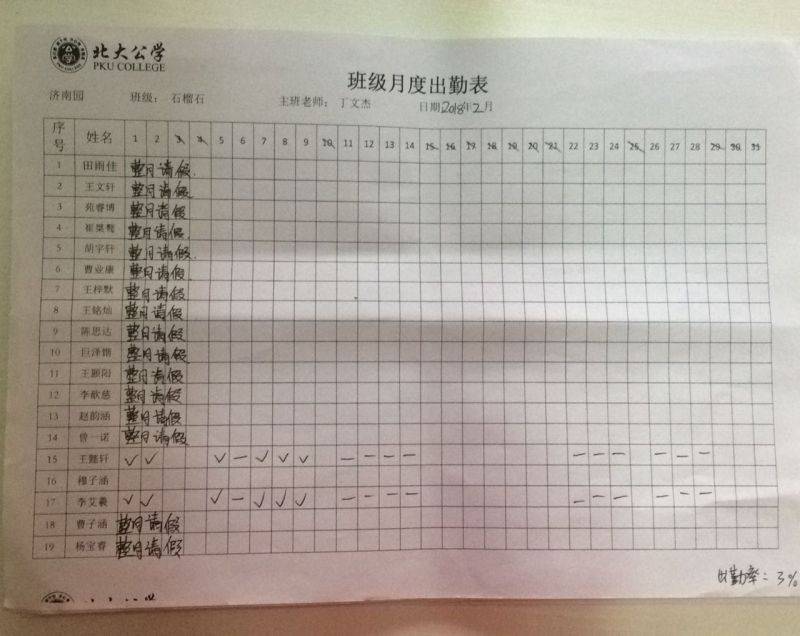 北大公学
PKU COLLEGE
班级月度出勤表
济南园 班级： 石榴石 主班老师： 丁文杰 日期2018年2月
序号 姓名 1 2 3 4 5 6 7 8 9 10 11 12 13 14 15 16 17 18 19 20 21 22 23 24 25 26 27 28 29 30 31
1 田雨佳 整月请假.
2 王文轩 整月请假
3 苑睿博 整月请假
4 整月请假.
5 胡宇轩 整月请假.
6 曹业康 整月请假
7 王梓默 整月请假
8 王铭灿 整月请假
9 陈思达 整月请假
10 整月请假
11 王颐阳 整月请假
12 李歆慈 整月请假
13 赵韵涵 整月请假
14 曾一诺 整月请假
15 王懿轩 ✓ ✓ ✓ — ✓ ✓ ✓ — — — — — — — — — —
16 穆子涵
17 李艾羲 ✓ ✓ ✓ — ✓ ✓ ✓ — — — — — — — — — —
18 曹子涵 整月请假
19 杨宝睿 整月请假
出勤率：3%
北大公学